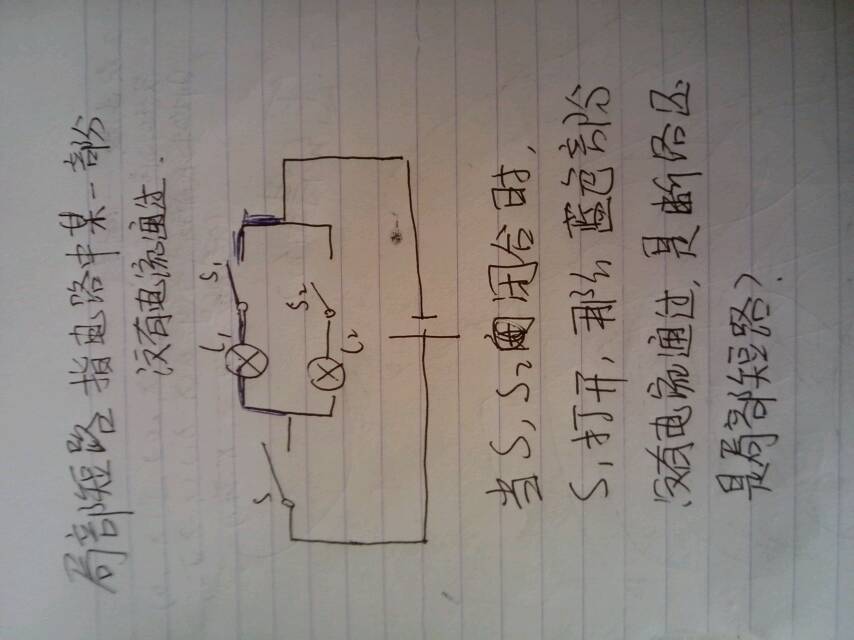 局部短路指电路中某一部分
没有电流通过.
S₁
S₂
L₁
L₂
S
当S,S₂闭合时,
S₁打开,那么蓝色部份
没有电流通过,是断路还
是局部短路?